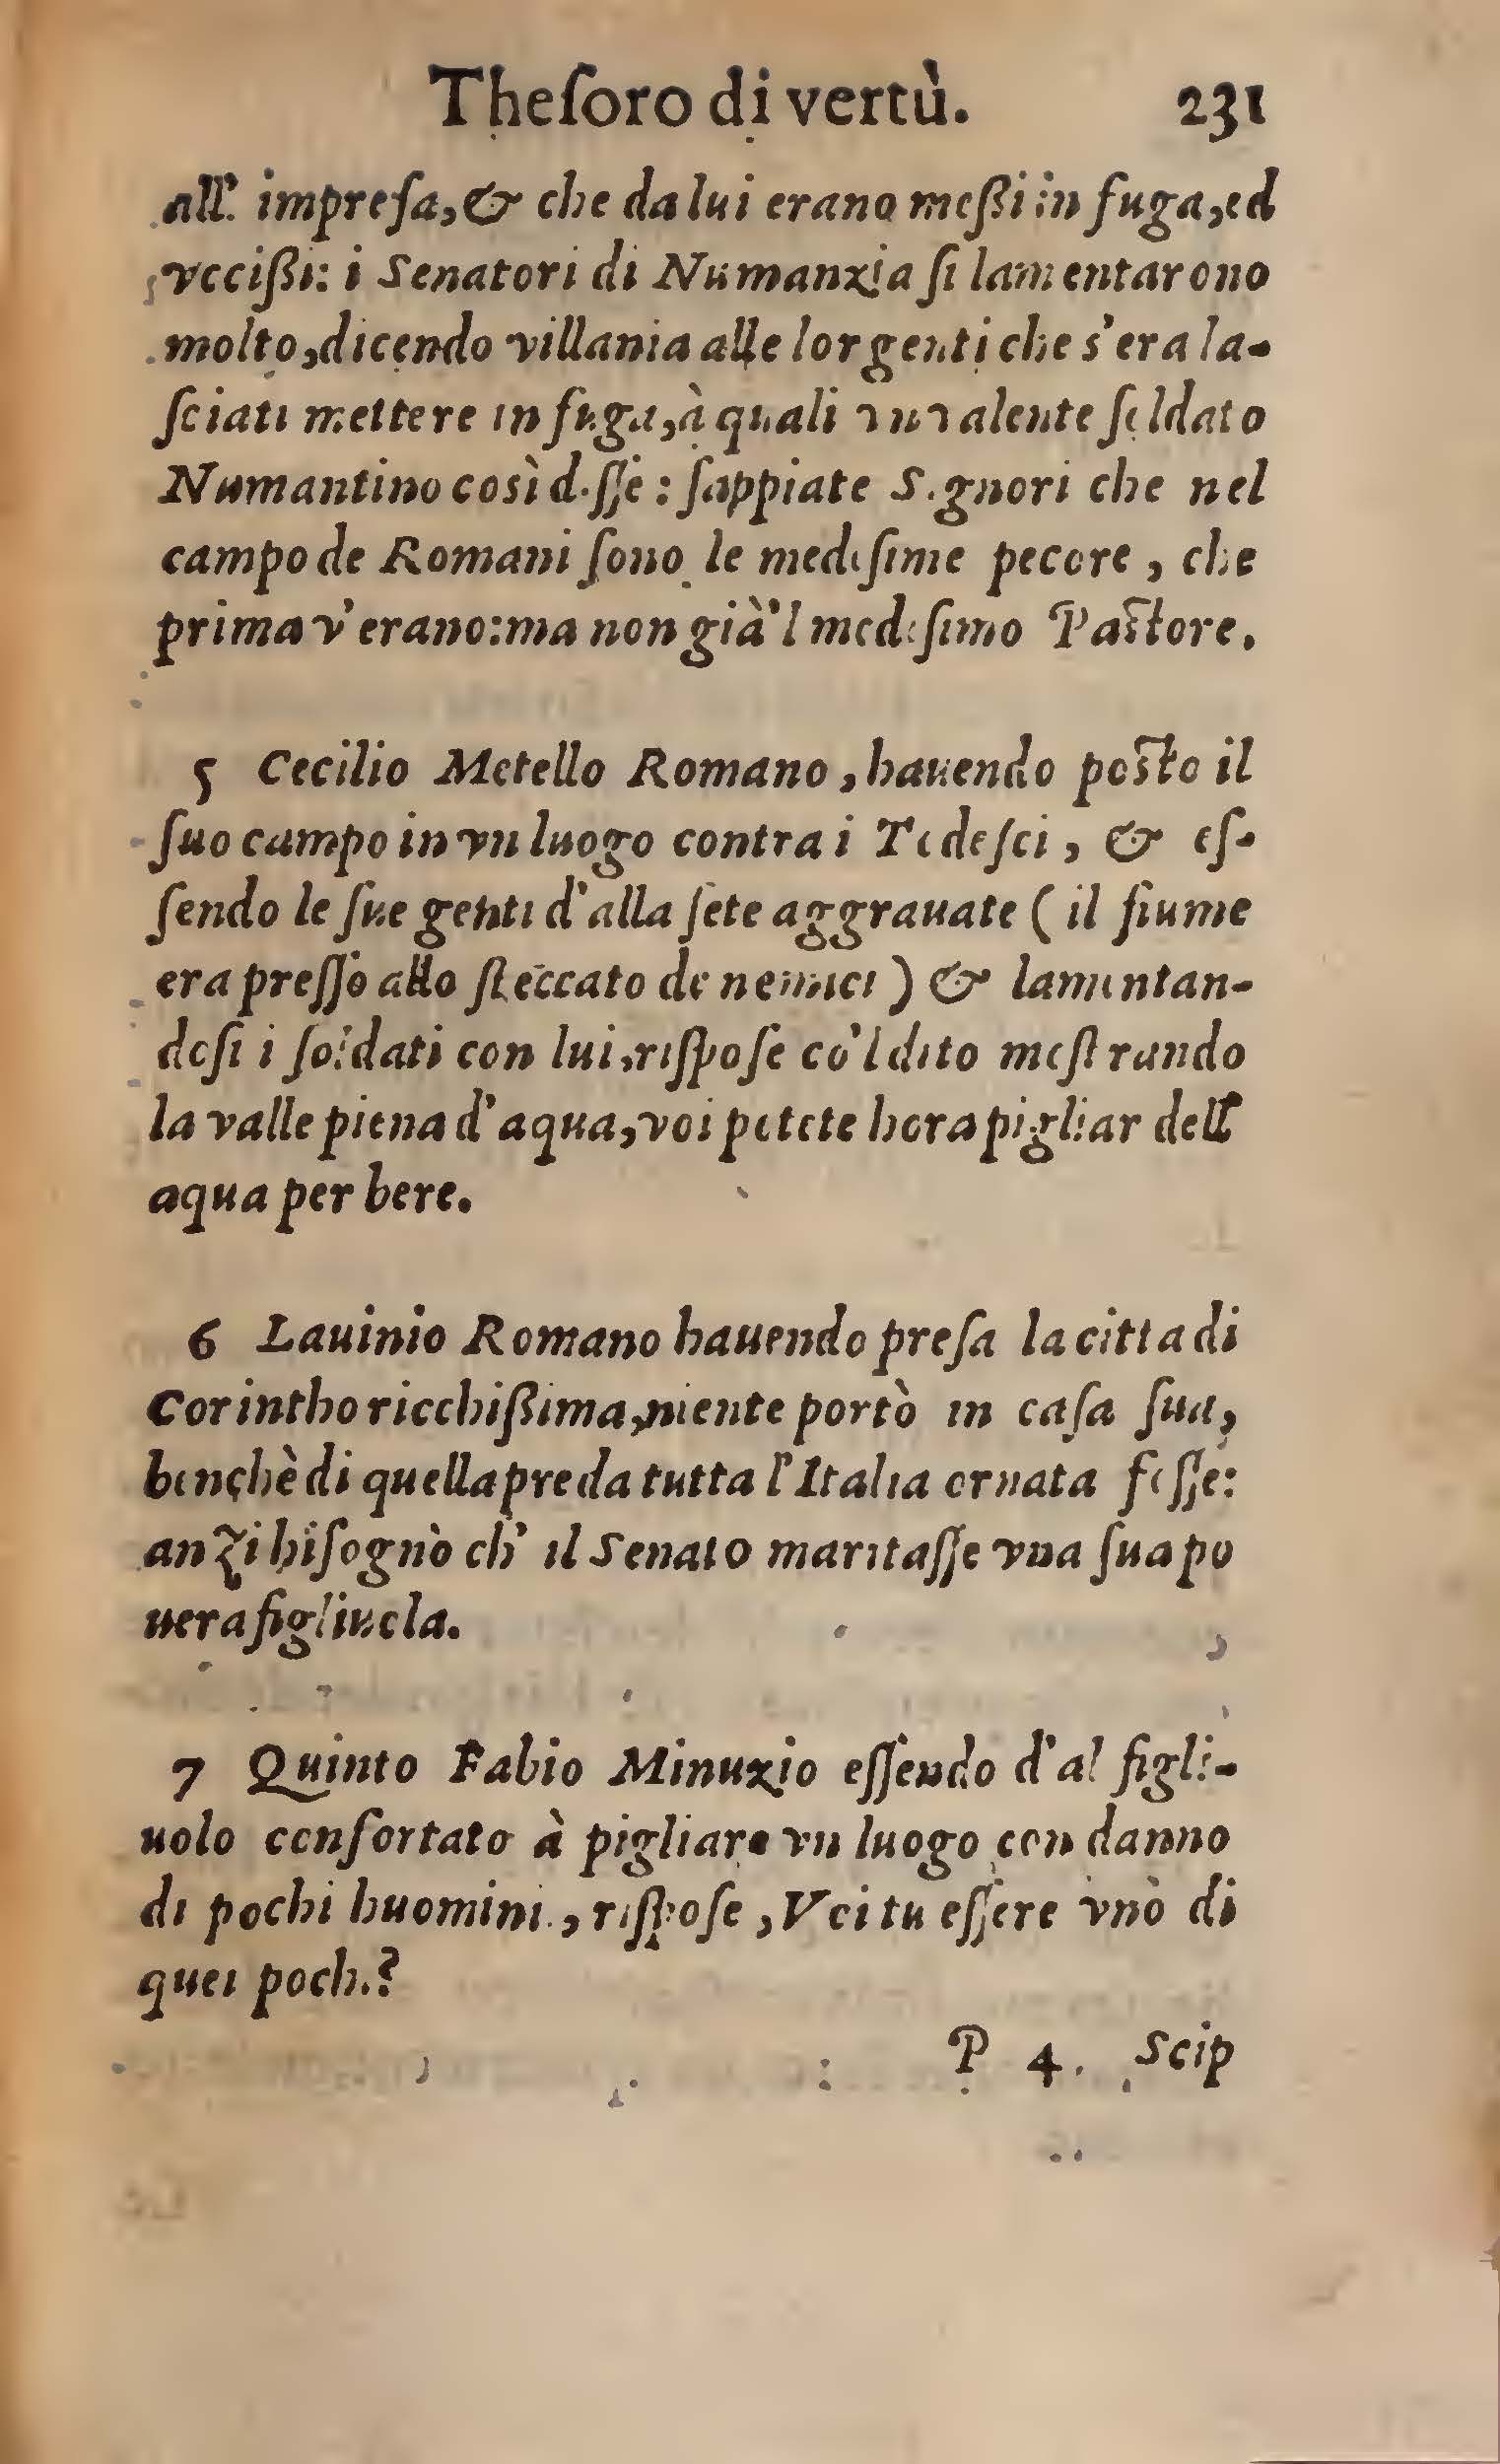 Theſoro di vertù. 231
all' impreſa, & che da lui erano meßi in fuga, ed
vccißi: i Senatori di Numanzia ſi lamentarono
molto, dicendo villania alle lor genti che s'era la-
ſciati mettere in fuga, à quali vn valente ſoldato
Numantino così diſſe: ſappiate Signori che nel
campo de Romani ſono le mediſime pecore, che
prima v'erano: ma non già'l mediſimo Paſtore.
5 Cecilio Metello Romano, hauendo poſto il
ſuo campo in vn luogo contra i Tedeſci, & eſ-
ſendo le ſue genti d'alla ſete aggrauate ( il fiume
era preſſo allo ſteccato de nemici ) & lamentan-
doſi i ſoldati con lui, riſpoſe co'l dito moſtrando
la valle piena d'aqua, voi potete hora pigliar dell'
aqua per bere.
6 Lauinio Romano hauendo preſa la citta di
Corintho ricchißima, niente portò in caſa ſua,
benchè di quella preda tutta l'Italia ornata foſſe:
anzi biſognò ch' il Senato maritaſſe vna ſua po
uera figliuola.
7 Quinto Fabio Minuzio eſſendo d'al figli-
uolo confortato à pigliare vn luogo con danno
di pochi huomini, riſpoſe, Voi tu eſſere vnò di
quei pochi?
P 4. Scip